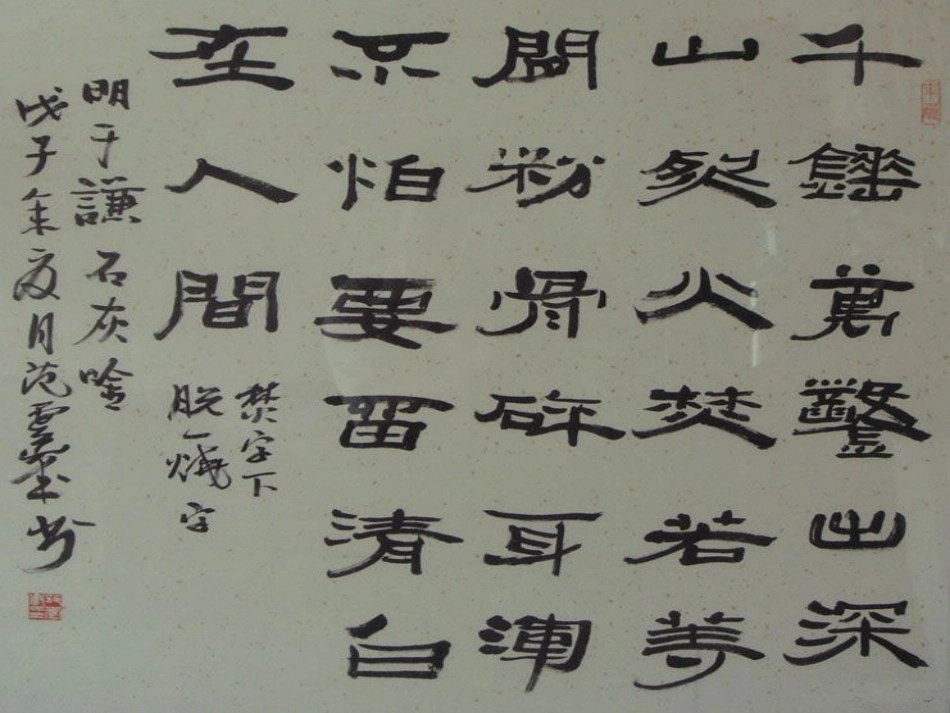 千錘萬鑿出深
山烈火焚若等
閒粉骨碎身渾
不怕要留清白
在人間
焚字下
脱一燒字
明于謙石灰吟
戊子年夏月范